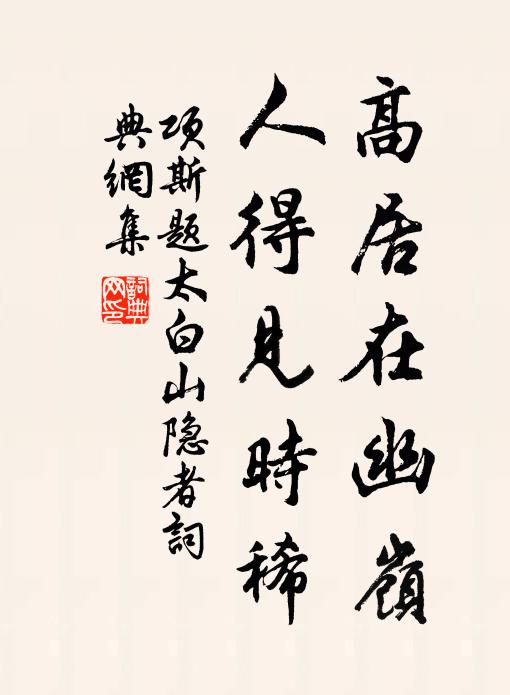 高居在幽嶺
人得見時稀
项斯题太白山隐者詞
典網集
詞典
网印